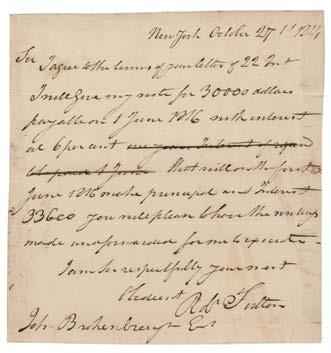 New York October 27 1814
Sir
I agree to the terms of your letter of 22 Inst
I will give my note for 30000 dollars
payable on 1 June 1816 with interest
at 6 per cent one years Interest
to be paid 1 June that will on the first
June 1816 make principal and Interest
33600 you will please to have the writings
made and forwarded for me to execute
I am Sir respectfully your most
Obedient
Robt Fulton
John Brockenbrough Esq